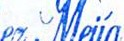 ez Mejía